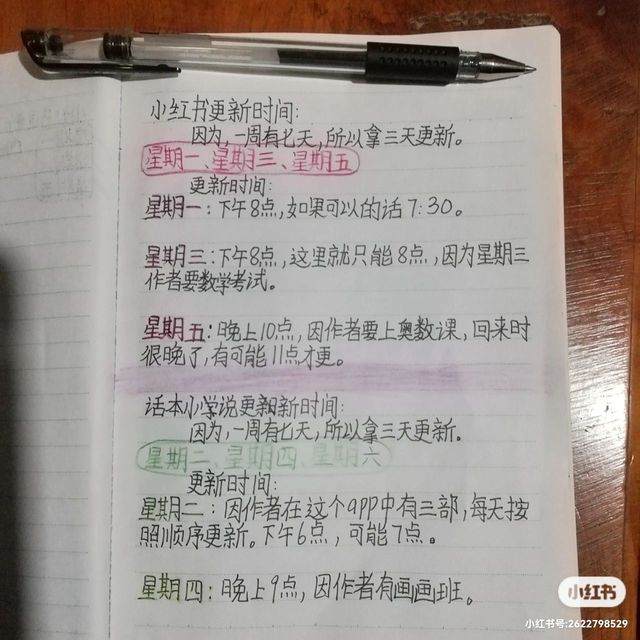 小红书更新时间:
因为,一周有七天,所以拿三天更新。
星期一、星期三、星期五
更新时间:
星期一:下午8点,如果可以的话7:30。
星期三:下午8点,这里就只能8点,因为星期三
作者要数学考试。
星期五:晚上10点,因作者要上奥数课,回来时
很晚了,有可能11点才更。
话本小学说更新时间:
因为,一周有七天,所以拿三天更新。
星期二、星期四、星期六
更新时间:
星期二:因作者在这个app中有三部,每天按
照顺序更新。下午6点,可能7点。
星期四:晚上9点,因作者有画画班。
小红书
小红书号:2622798529